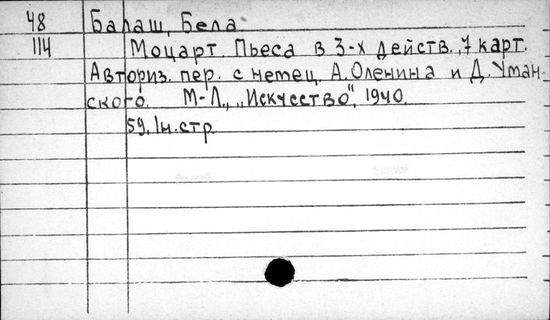 48 Балаш, Бела
114 Моцарт. Пьеса в 3-х действ., 7 карт.
Авториз. пер. с немец. А. Оленина и Д. Уман-
ского. М-Л., „Искусство", 1940.
59, 1н. стр.